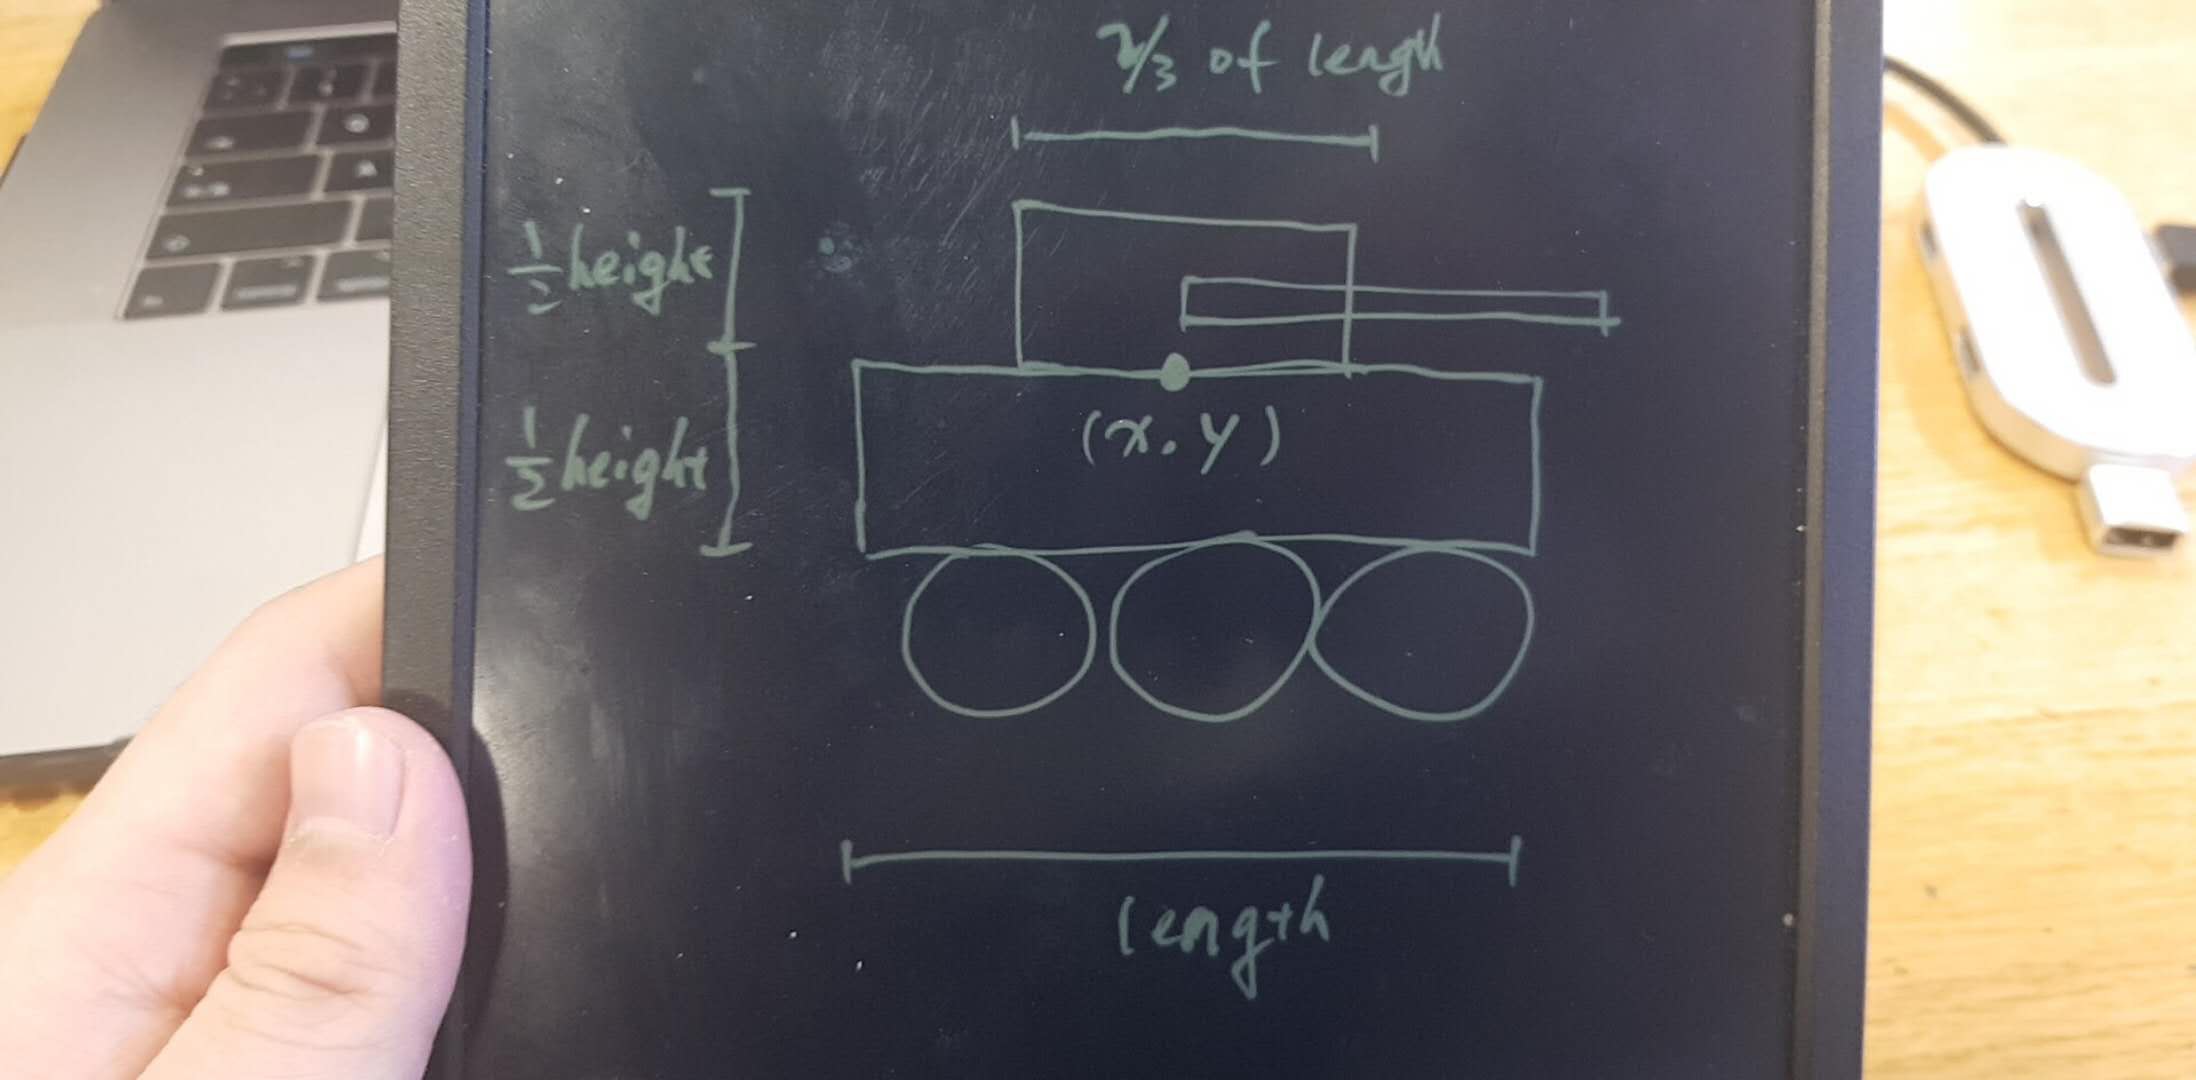 2/3 of length
1/2 height
(x, y)
1/2 height
length